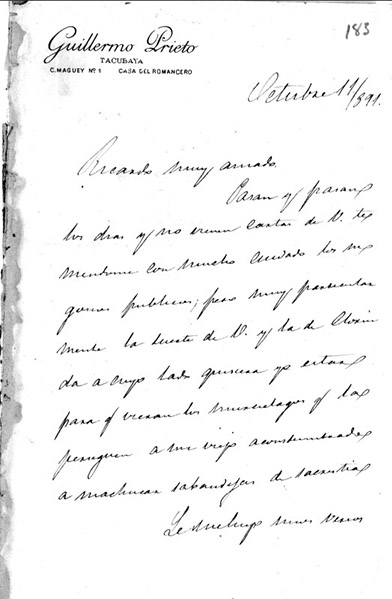 183
Guillermo Prieto
TACUBAYA
C. MAGUEY Nº 1 CASA DEL ROMANCERO
Octubre 11/891.
Ricardo muy amado.
Pasan y pasan
los dias y no vienen cartas de V. te
niendome con mucho cuidado los ne
gocios publicos; pero muy particular
mente la suerte de V. y la de
da a cuyo lado quisiera yo estar
para q vieran los q los
persiguen a mi viejo acostumbrado
a machucar sabandijas de sacristia
Le incluyo unos versos